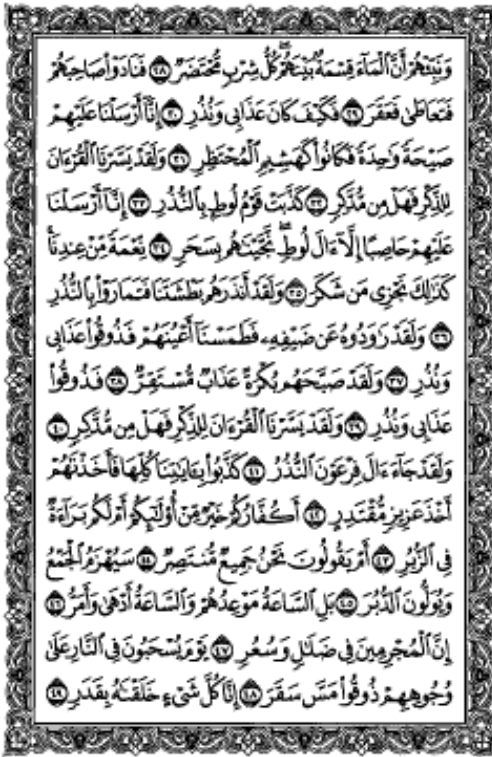 وَنَبِّئْهُمْ أَنَّ ٱلْمَآءَ قِسْمَةٌۢ بَيْنَهُمْ ۖ كُلُّ شِرْبٍ مُّحْتَضَرٌ ٢٨ فَنَادَوْا۟ صَاحِبَهُمْ
فَتَعَاطَىٰ فَعَقَرَ ٢٩ فَكَيْفَ كَانَ عَذَابِى وَنُذُرِ ٣٠ إِنَّآ أَرْسَلْنَا عَلَيْهِمْ
صَيْحَةً وَٰحِدَةً فَكَانُوا۟ كَهَشِيمِ ٱلْمُحْتَظِرِ ٣١ وَلَقَدْ يَسَّرْنَا ٱلْقُرْءَانَ
لِلذِّكْرِ فَهَلْ مِن مُّدَّكِرٍ ٣٢ كَذَّبَتْ قَوْمُ لُوطٍۭ بِٱلنُّذُرِ ٣٣ إِنَّآ أَرْسَلْنَا
عَلَيْهِمْ حَاصِبًا إِلَّآ ءَالَ لُوطٍ ۖ نَّجَّيْنَٰهُم بِسَحَرٍ ٣٤ نِّعْمَةً مِّنْ عِندِنَا ۚ
كَذَٰلِكَ نَجْزِى مَن شَكَرَ ٣٥ وَلَقَدْ أَنذَرَهُم بَطْشَتَنَا فَتَمَارَوْا۟ بِٱلنُّذُرِ
٣٦ وَلَقَدْ رَٰوَدُوهُ عَن ضَيْفِهِۦ فَطَمَسْنَآ أَعْيُنَهُمْ فَذُوقُوا۟ عَذَابِى
وَنُذُرِ ٣٧ وَلَقَدْ صَبَّحَهُم بُكْرَةً عَذَابٌ مُّسْتَقِرٌّ ٣٨ فَذُوقُوا۟
عَذَابِى وَنُذُرِ ٣٩ وَلَقَدْ يَسَّرْنَا ٱلْقُرْءَانَ لِلذِّكْرِ فَهَلْ مِن مُّدَّكِرٍ ٤٠
وَلَقَدْ جَآءَ ءَالَ فِرْعَوْنَ ٱلنُّذُرُ ٤١ كَذَّبُوا۟ بِـَٔايَٰتِنَا كُلِّهَا فَأَخَذْنَٰهُمْ
أَخْذَ عَزِيزٍ مُّقْتَدِرٍ ٤٢ أَكُفَّارُكُمْ خَيْرٌ مِّنْ أُو۟لَٰٓئِكُمْ أَمْ لَكُم بَرَآءَةٌ
فِى ٱلزُّبُرِ ٤٣ أَمْ يَقُولُونَ نَحْنُ جَمِيعٌ مُّنتَصِرٌ ٤٤ سَيُهْزَمُ ٱلْجَمْعُ
وَيُوَلُّونَ ٱلدُّبُرَ ٤٥ بَلِ ٱلسَّاعَةُ مَوْعِدُهُمْ وَٱلسَّاعَةُ أَدْهَىٰ وَأَمَرُّ ٤٦
إِنَّ ٱلْمُجْرِمِينَ فِى ضَلَٰلٍ وَسُعُرٍ ٤٧ يَوْمَ يُسْحَبُونَ فِى ٱلنَّارِ عَلَىٰ
وُجُوهِهِمْ ذُوقُوا۟ مَسَّ سَقَرَ ٤٨ إِنَّا كُلَّ شَىْءٍ خَلَقْنَٰهُ بِقَدَرٍ ٤٩